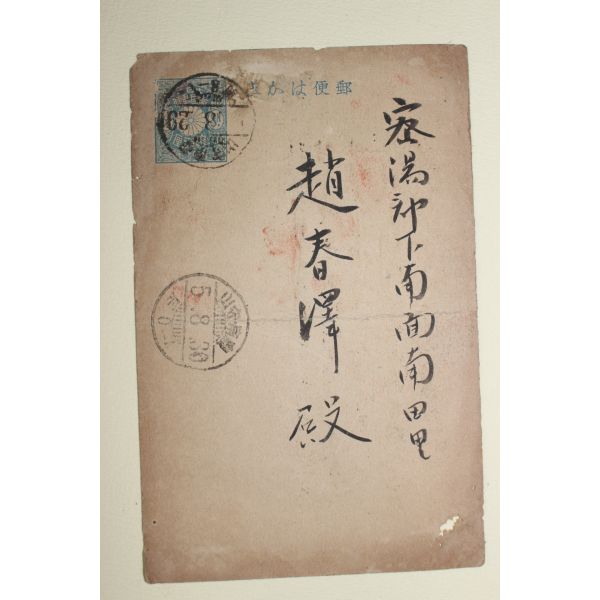 郵便はかき
密陽郡下南面南田里
趙春澤殿
8 29
5.8.30